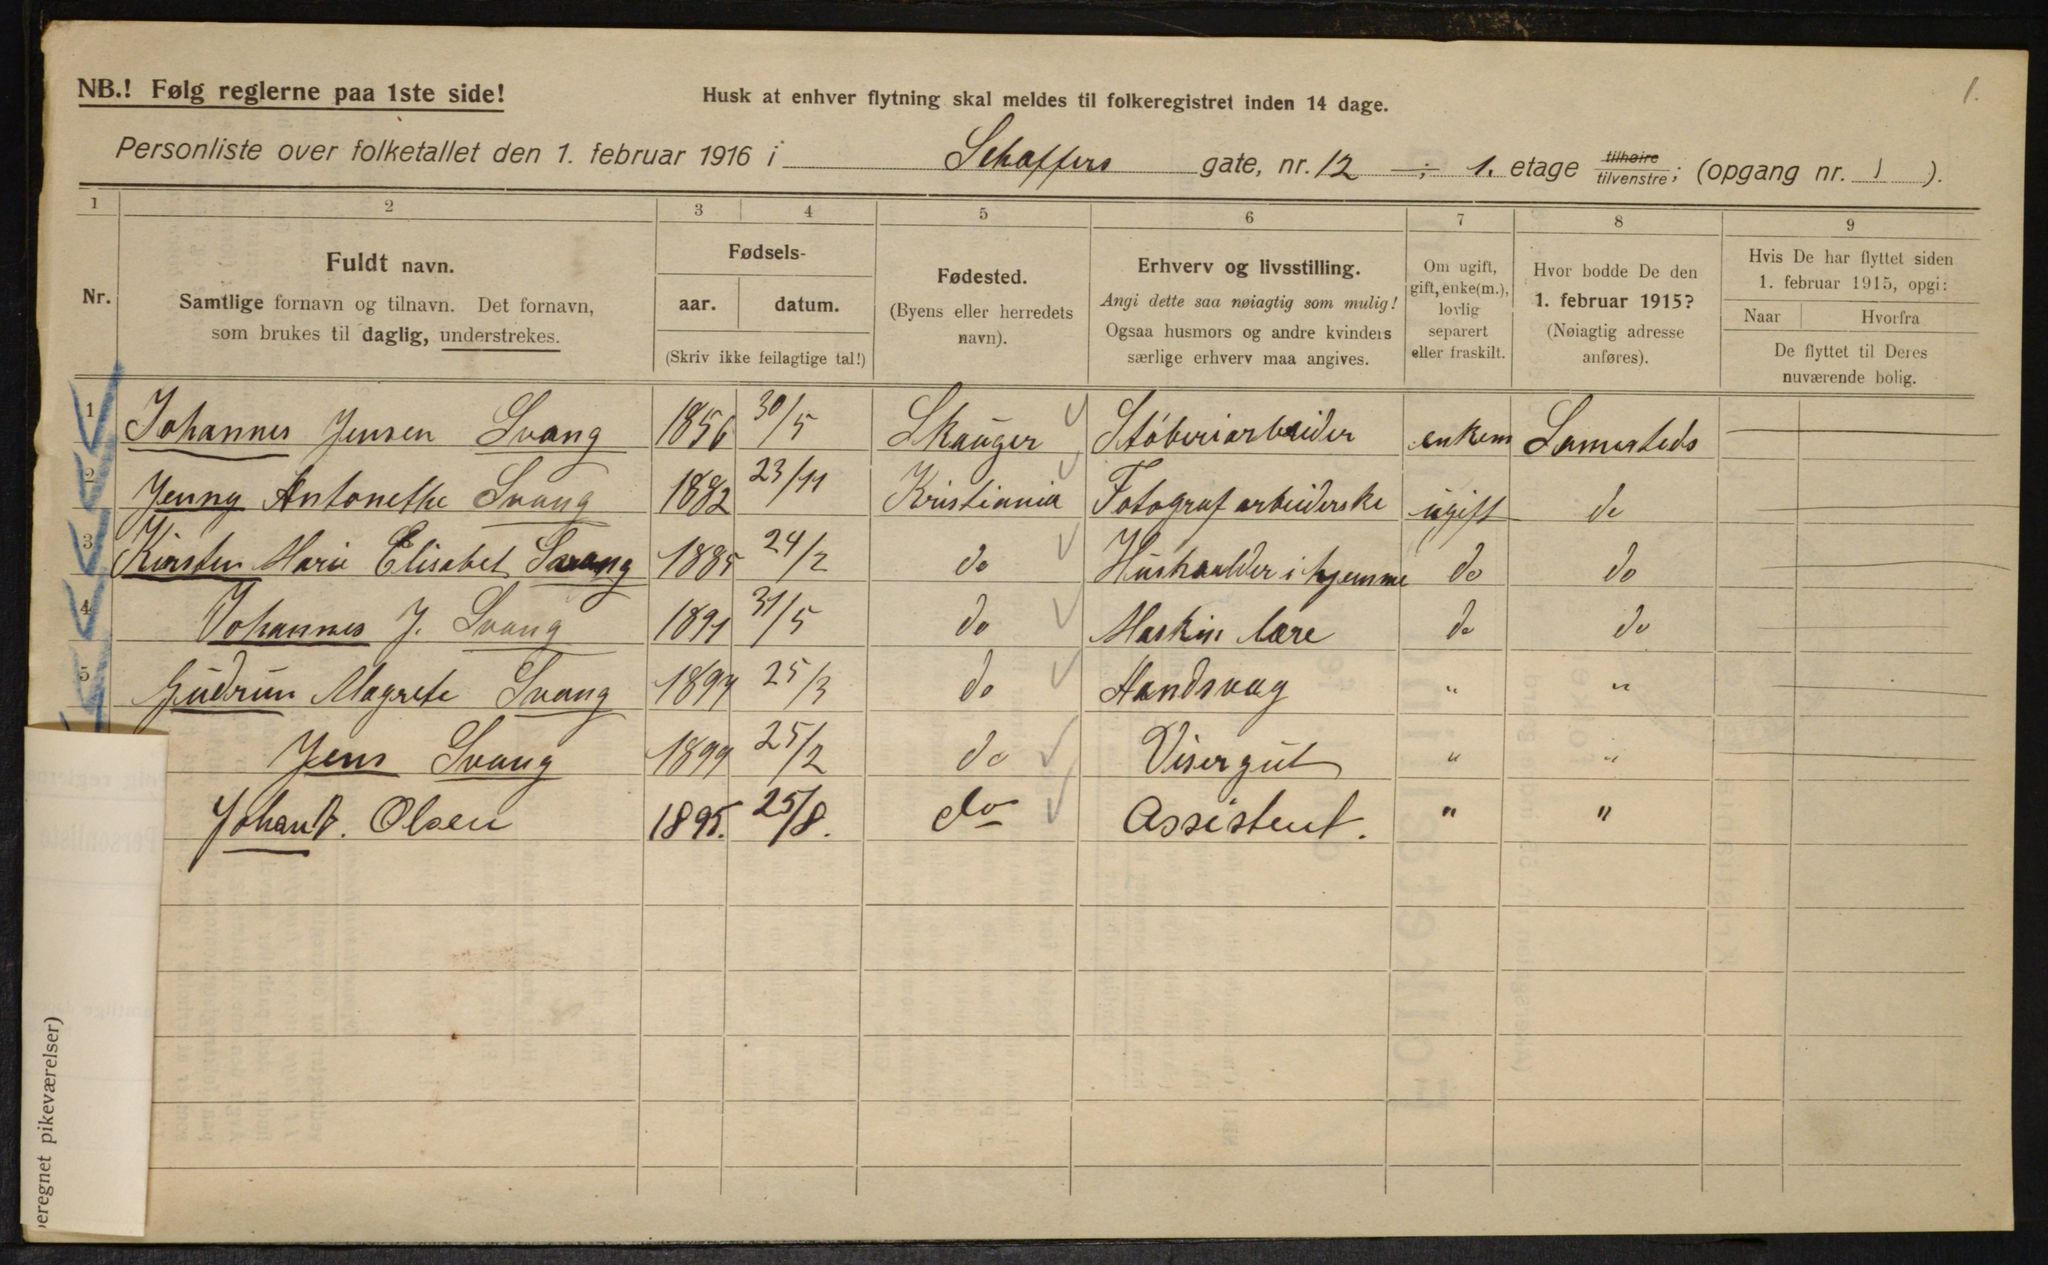 NB.! Følg reglerne paa 1ste side!
Husk at enhver flytning skal meldes til folkeregistret inden 14 dage.
1.
Personliste over folketallet den 1. februar 1916 i Schaffers gate, nr. 12 —; 1. etage tilhøire tilvenstre; (opgang nr. 1).
1 2 3 4 5 6 7 8 9
Nr.
Fuldt navn.
Samtlige fornavn og tilnavn. Det fornavn,
som brukes til daglig, understrekes.
Fødsels-
aar. datum.
(Skriv ikke feilagtige tal!)
Fødested.
(Byens eller herredets
navn).
Erhverv og livsstilling.
Angi dette saa nøiagtig som mulig!
Ogsaa husmors og andre kvinders
særlige erhverv maa angives.
Om ugift,
gift, enke(m.),
lovlig
separert
eller fraskilt.
Hvor bodde De den
1. februar 1915?
(Nøiagtig adresse
anføres).
Hvis De har flyttet siden
1. februar 1915, opgi:
Naar Hvorfra
De flyttet til Deres
nuværende bolig.
1 Johannes Jensen Svang 1856 30/5 Skauger Støberiarbeider enkem Samesteds
2 Jenny Antonethe Svang 1882 23/11 Kristiania Fotograf arbeiderske ugift do
3 Kirsten Marie Elisabet Svang 1885 24/2 do Hushaalder i hjemme do do
4 Johannes J. Svang 1891 31/5 do Maskin lære do do
5 Gudrun Magrete Svang 25/3 do " "
Jens Svang 1899 25/2 do Visergut " "
Johan Olsen 1895. 25/8. do Assistent. " "
beregnet pikeværelser)